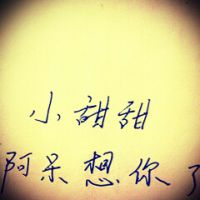 小甜甜
阿呆想你了